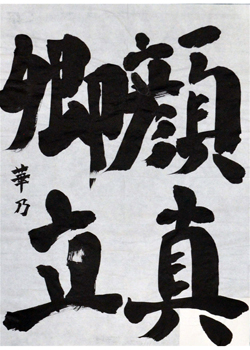 顔真
卿立
華乃